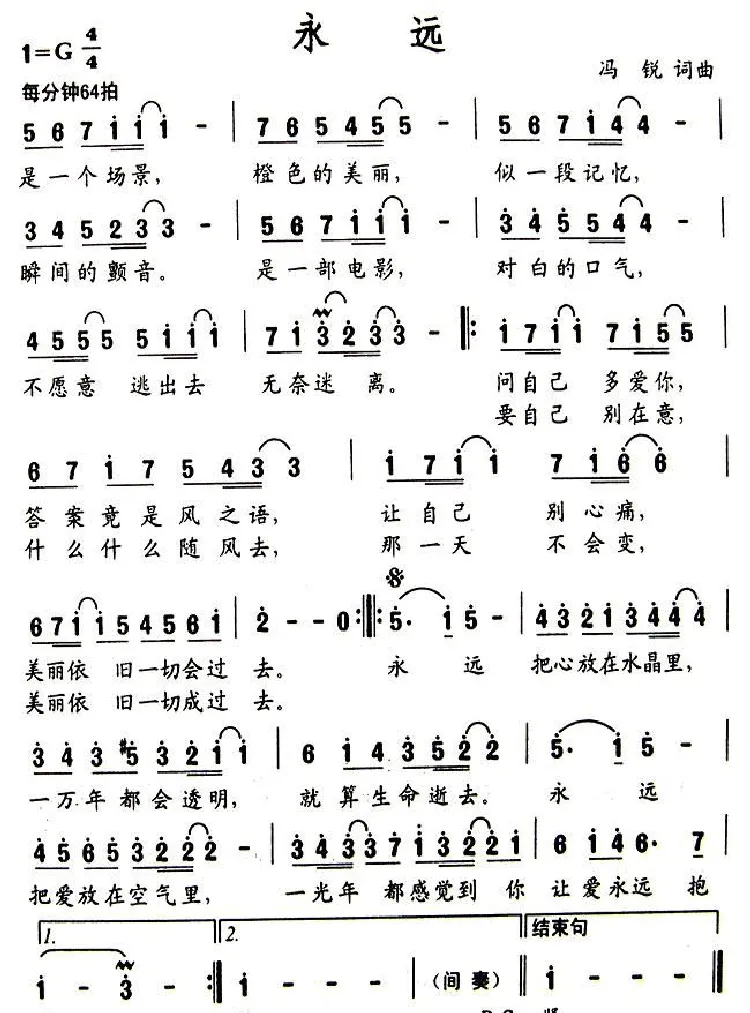 永 远
1=G 4/4
冯 锐 词曲
每分钟64拍
5 6 7 1 1 1 - | 7 6 5 4 5 5 - | 5 6 7 1 4 4 - |
是一个场景， 橙色的美丽， 似一段记忆，
3 4 5 2 3 3 - | 5 6 7 1 1 1 - | 3 4 5 5 4 4 - |
瞬间的颤音。 是一部电影， 对白的口气，
4 5 5 5 5 1 1 1 | 7 1 3 2 3 3 - |: 1 7 1 1 7 1 5 5 |
不愿意 逃出去 无奈迷 离。 问自己 多爱你，
要自己 别在意，
6 7 1 7 5 4 3 3 | 1 7 1 1 7 1 6 6 |
答案竟是风之语， 让自己 别心痛，
什么什么随风去， 那一天 不会变，
6 7 1 1 5 4 5 6 1 | 2 - - 0 :|: 5· 1 5 - | 4 3 2 1 3 4 4 4 |
美丽依 旧一切会过 去。 永 远 把心放在水晶里，
美丽依 旧一切成过 去。
3 4 3 #5 3 2 1 1 | 6 1 4 3 5 2 2 | 5· 1 5 - |
一万年都会透明， 就算生命逝去。 永 远
4 5 6 5 3 2 2 2 - | 3 4 3 3 7 1 3 2 2 1 | 6 1 4 6· 7 |
把爱放在空气里， 一光年 都感觉到 你 让爱永远 抱
1. 2. 结束句
1 - 3 - :| 1 - - - | （间 奏） | 1 - - - ‖